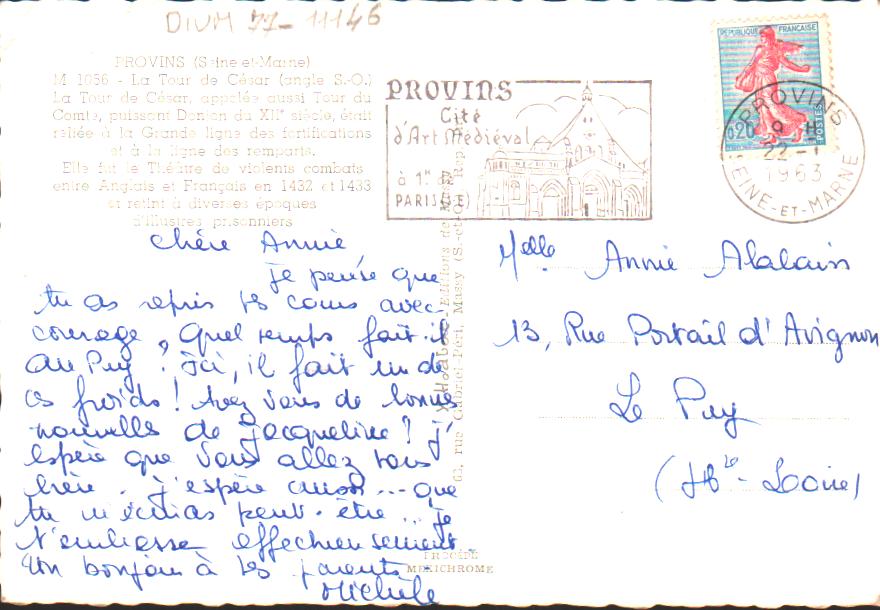 DIVM 77-11146
PROVINS (Seine-et-Marne)
M 1056 - La Tour de César (angle S.-O.)
La Tour de César, appelée aussi Tour du
Comte, puissant Donjon du XIIe siècle, était
reliée à la Grande ligne des fortifications
et à la ligne des remparts.
Elle fut le Théâtre de violents combats
entre Anglais et Français en 1432 et 1433
et retint à diverses époques
d'illustres prisonniers
PROVINS
Cité
d'Art Médiéval
à 1H de
PARIS (E)
REPUBLIQUE FRANÇAISE
0,20
POSTES
PROVINS
9 H
22 - 1
1963
SEINE-ET-MARNE
Chère Annie
je pense que
tu as repris tes cours avec
courage, Quel temps fait-il
au Puy ? Ici, il fait un de
ces froids ! Avez vous de bonnes
nouvelles de Jacqueline ? j'
espère que vous allez tous
bien. j'espère aussi... que
tu m'écriras peut-être... je
t'embrasse affectueusement
Un bonjour à tes parents
Michèle
Editions de Massy
63, rue Gabriel Péri, Massy (S.-et-O.) Rep
PROCÉDÉ
MEXICHROME
Melle Annie Alalain
13, Rue Portail d'Avignon
Le Puy
(Hte-Loire)